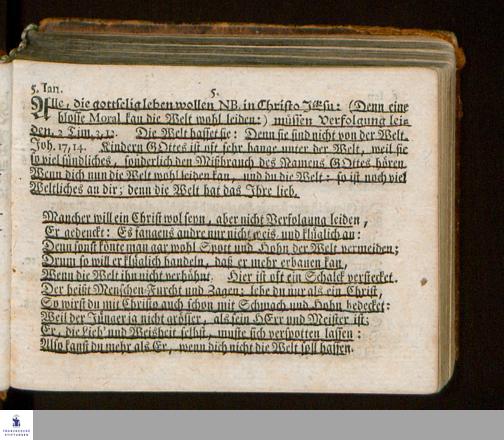 5. Jan.
5.
Alle, die gottselig leben wollen NB. in Christo JEsu: (Denn eine
blosse Moral kan die Welt wohl leiden:) müssen Verfolgung lei-
den. 2 Tim. 3, 12. Die Welt hasset sie: Denn sie sind nicht von der Welt.
Joh. 17, 14. Kindern GOttes ist oft sehr bange unter der Welt, weil sie
so viel sündliches, sonderlich den Mißbrauch des Namens GOttes hören.
Wenn dich nun die Welt wohl leiden kan, und du die Welt: so ist noch viel
Weltliches an dir; denn die Welt hat das Ihre lieb.
Mancher will ein Christ wol seyn, aber nicht Verfolgung leiden,
Er gedenckt: Es fangens andre nur nicht weis- und klüglich an:
Denn sonst könte man gar wohl Spott und Hohn der Welt vermeiden;
Drum so will er klüglich handeln, daß er mehr erbauen kan,
Wenn die Welt ihn nicht verhöhnt. Hier ist oft ein Schalck verstecket.
Der heißt Menschen-Furcht und Zagen; lebe du nur als ein Christ,
So wirst du mit Christo auch schon mit Schmach und Hohn bedecket:
Weil der Jünger ja nicht grösser, als sein HErr und Meister ist:
Er, die Lieb' und Weisheit selbst, muste sich verspotten lassen:
Also kanst du mehr als Er, wenn dich nicht die Welt soll hassen.
FRANCKESCHE
STIFTUNGEN